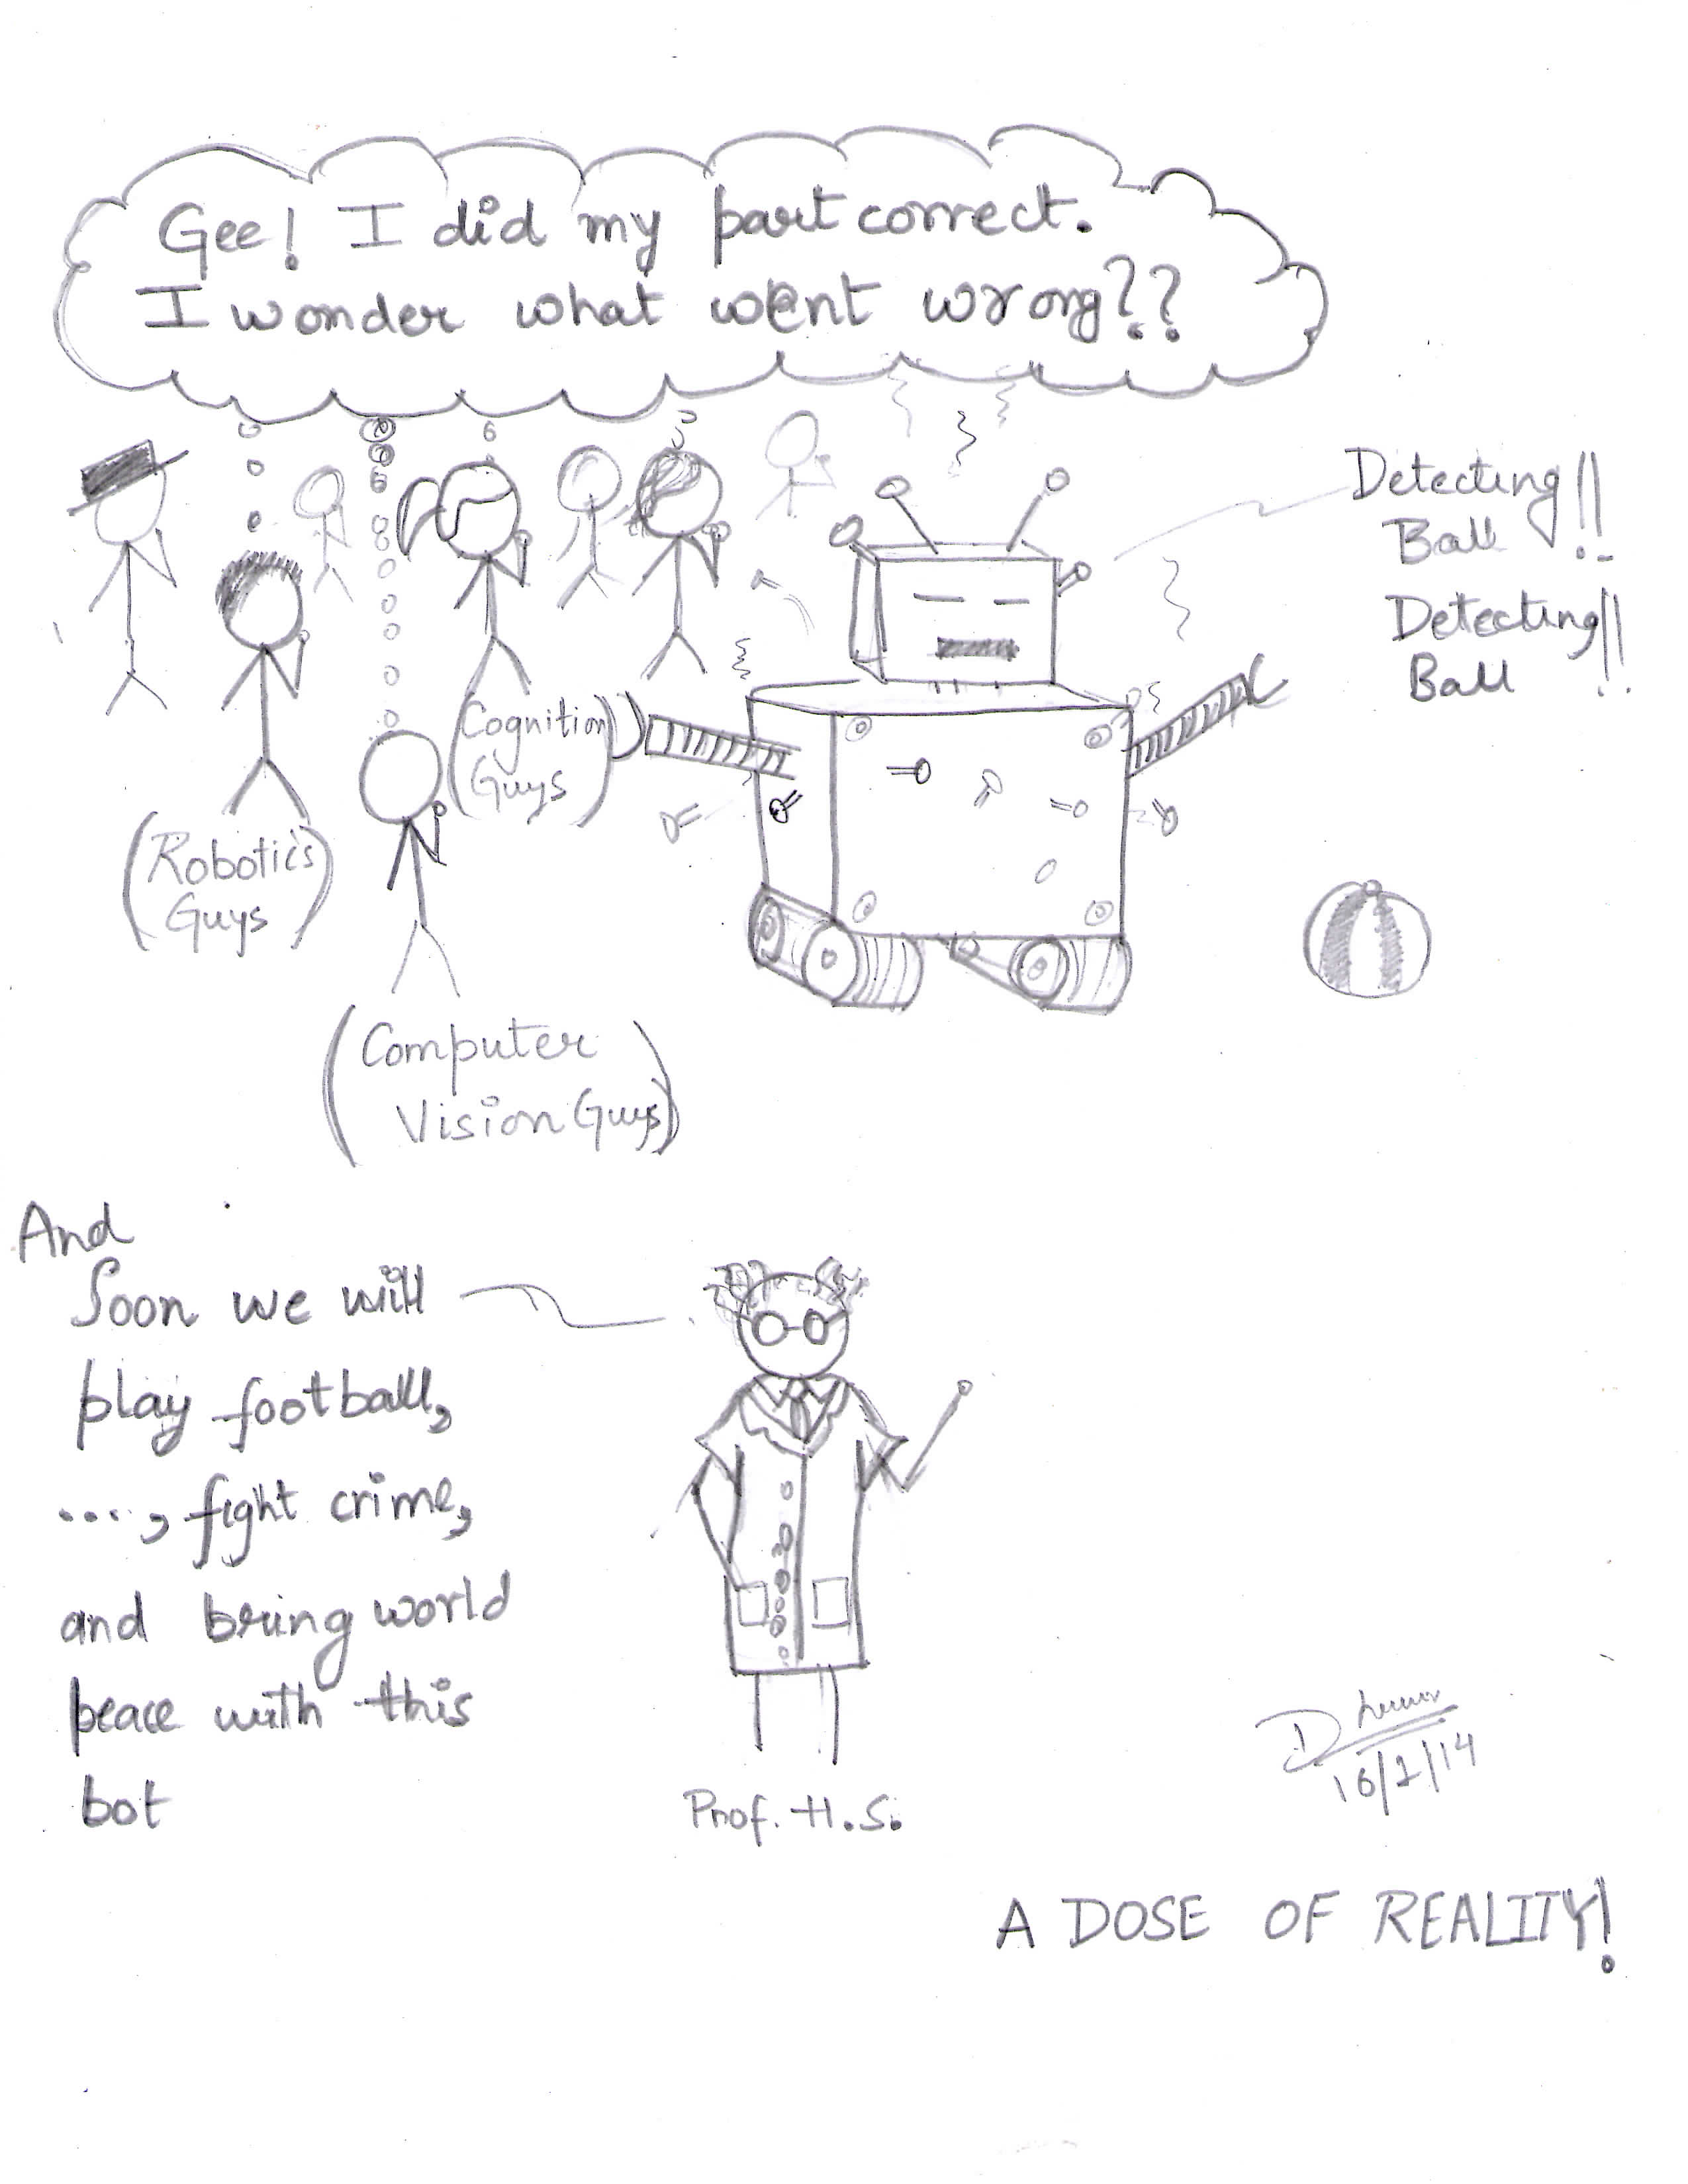 Gee! I did my part correct.
I wonder what went wrong??
Detecting!!
Ball
Detecting!!
Ball
(Cognition
Guys)
(Robotics
Guys)
(Computer
Vision Guys)
And
Soon we will
play football,
...., fight crime,
and bring world
peace with this
bot
Prof. H.S.
16/2/14
A DOSE OF REALITY!